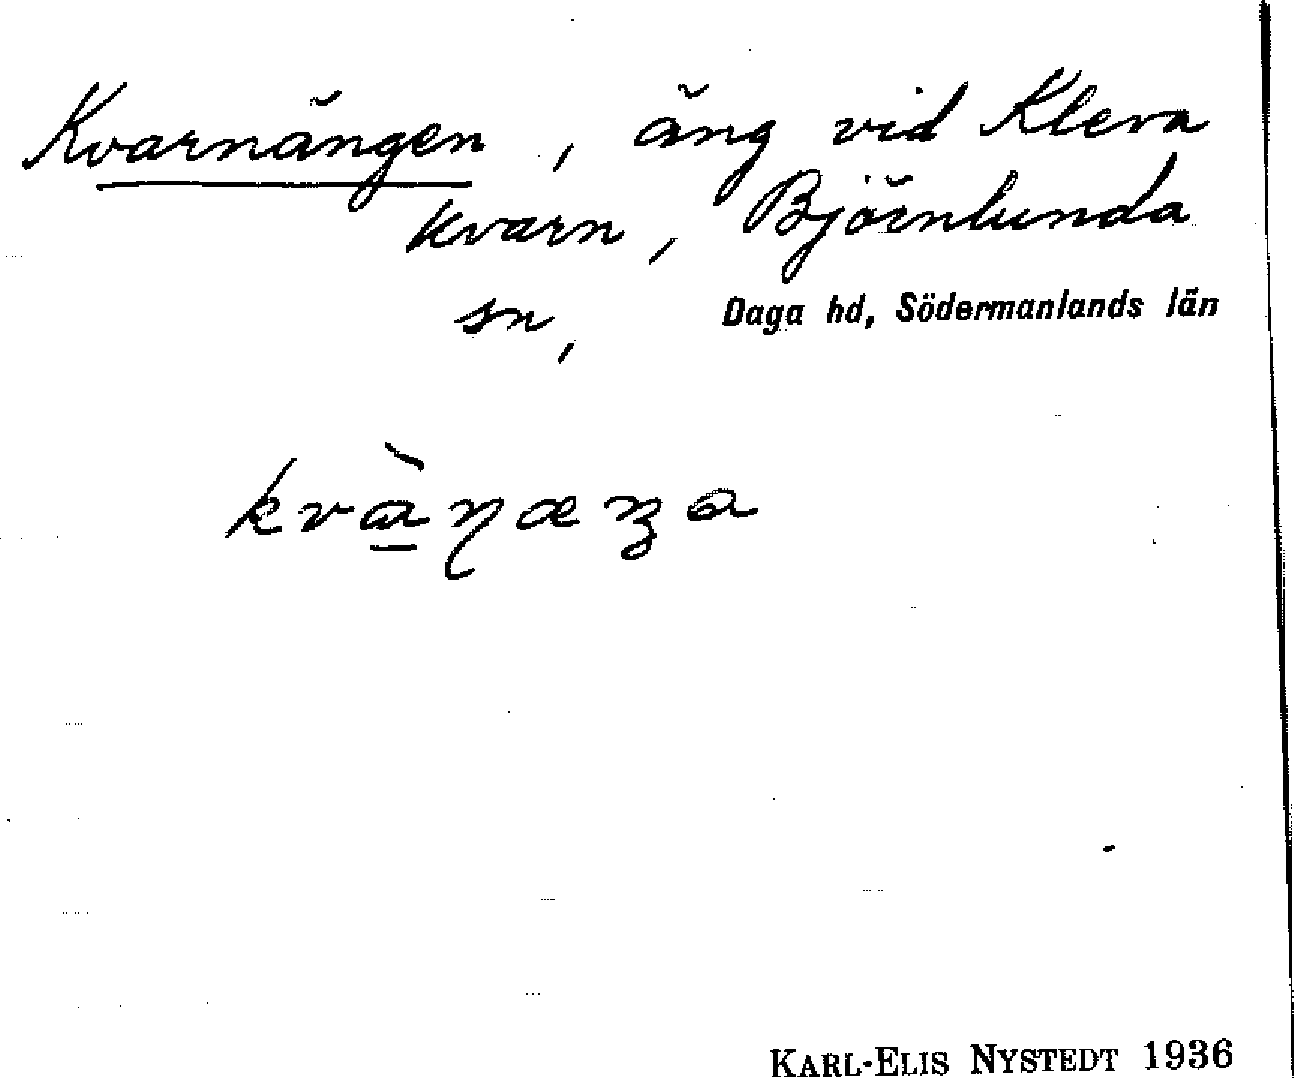 Kvarnängen, äng vid Kleva
kvarn, Björnlunda
sn, Daga hd, Södermanlands län
KARL-ELIS NYSTEDT 1936